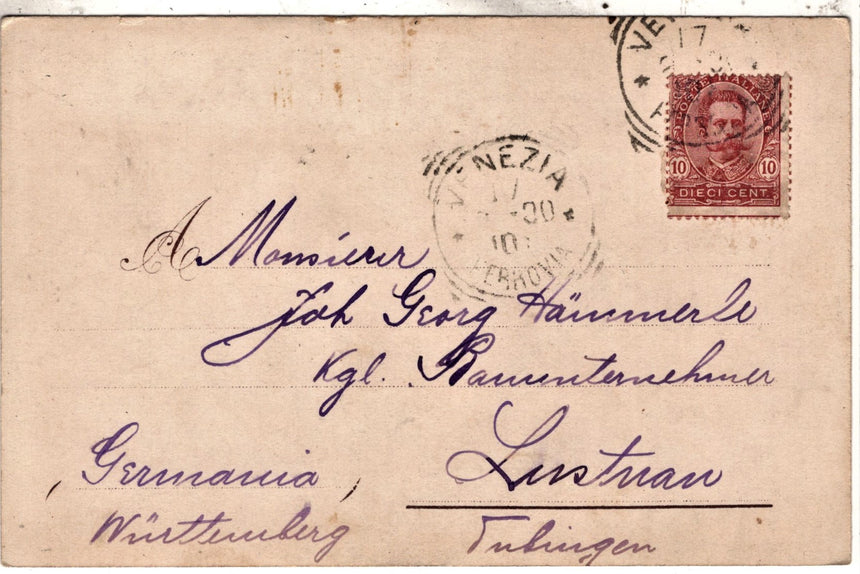 VENEZIA
17
POSTE ITALIANE
10 10
DIECI CENT.
VENEZIA
-00
10
FERROVIA
A Monsieur
Joh Georg Hämmerle
Kgl. Bauunternehmer
Lustnau
Germania,
Württemberg Tubingen